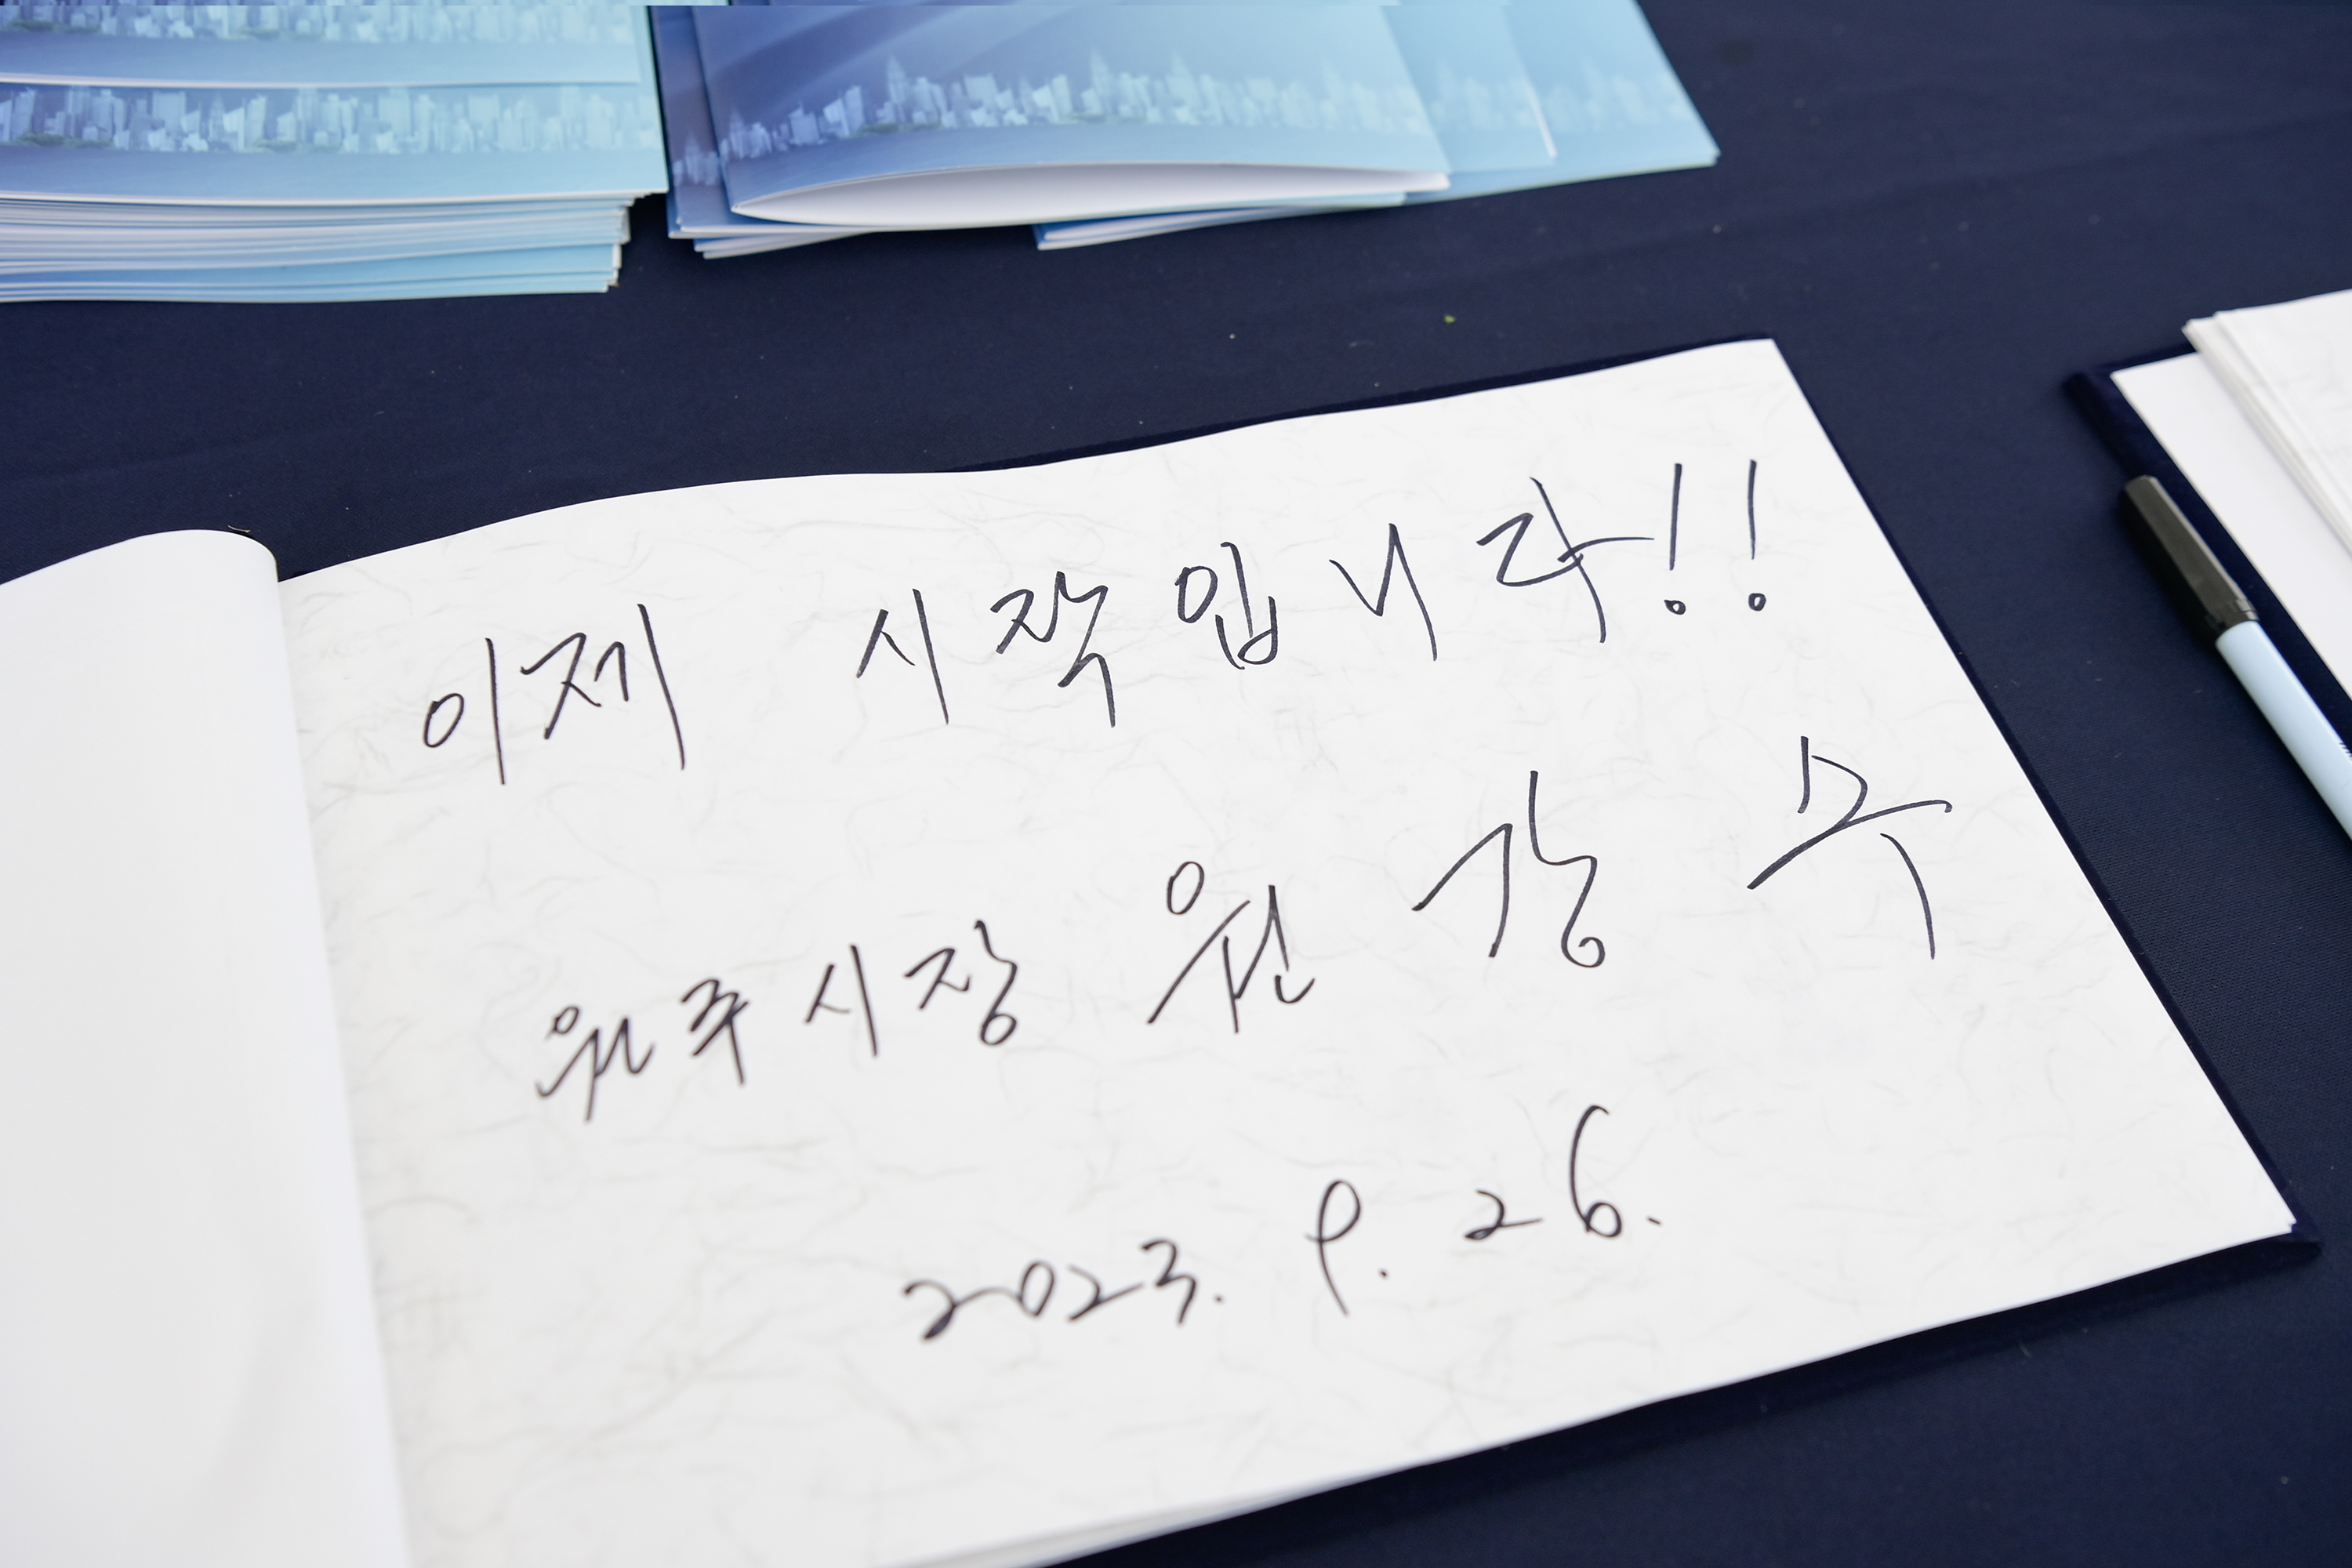 이제 시작입니다!!
원주시장 원강수
2023. 9. 26.